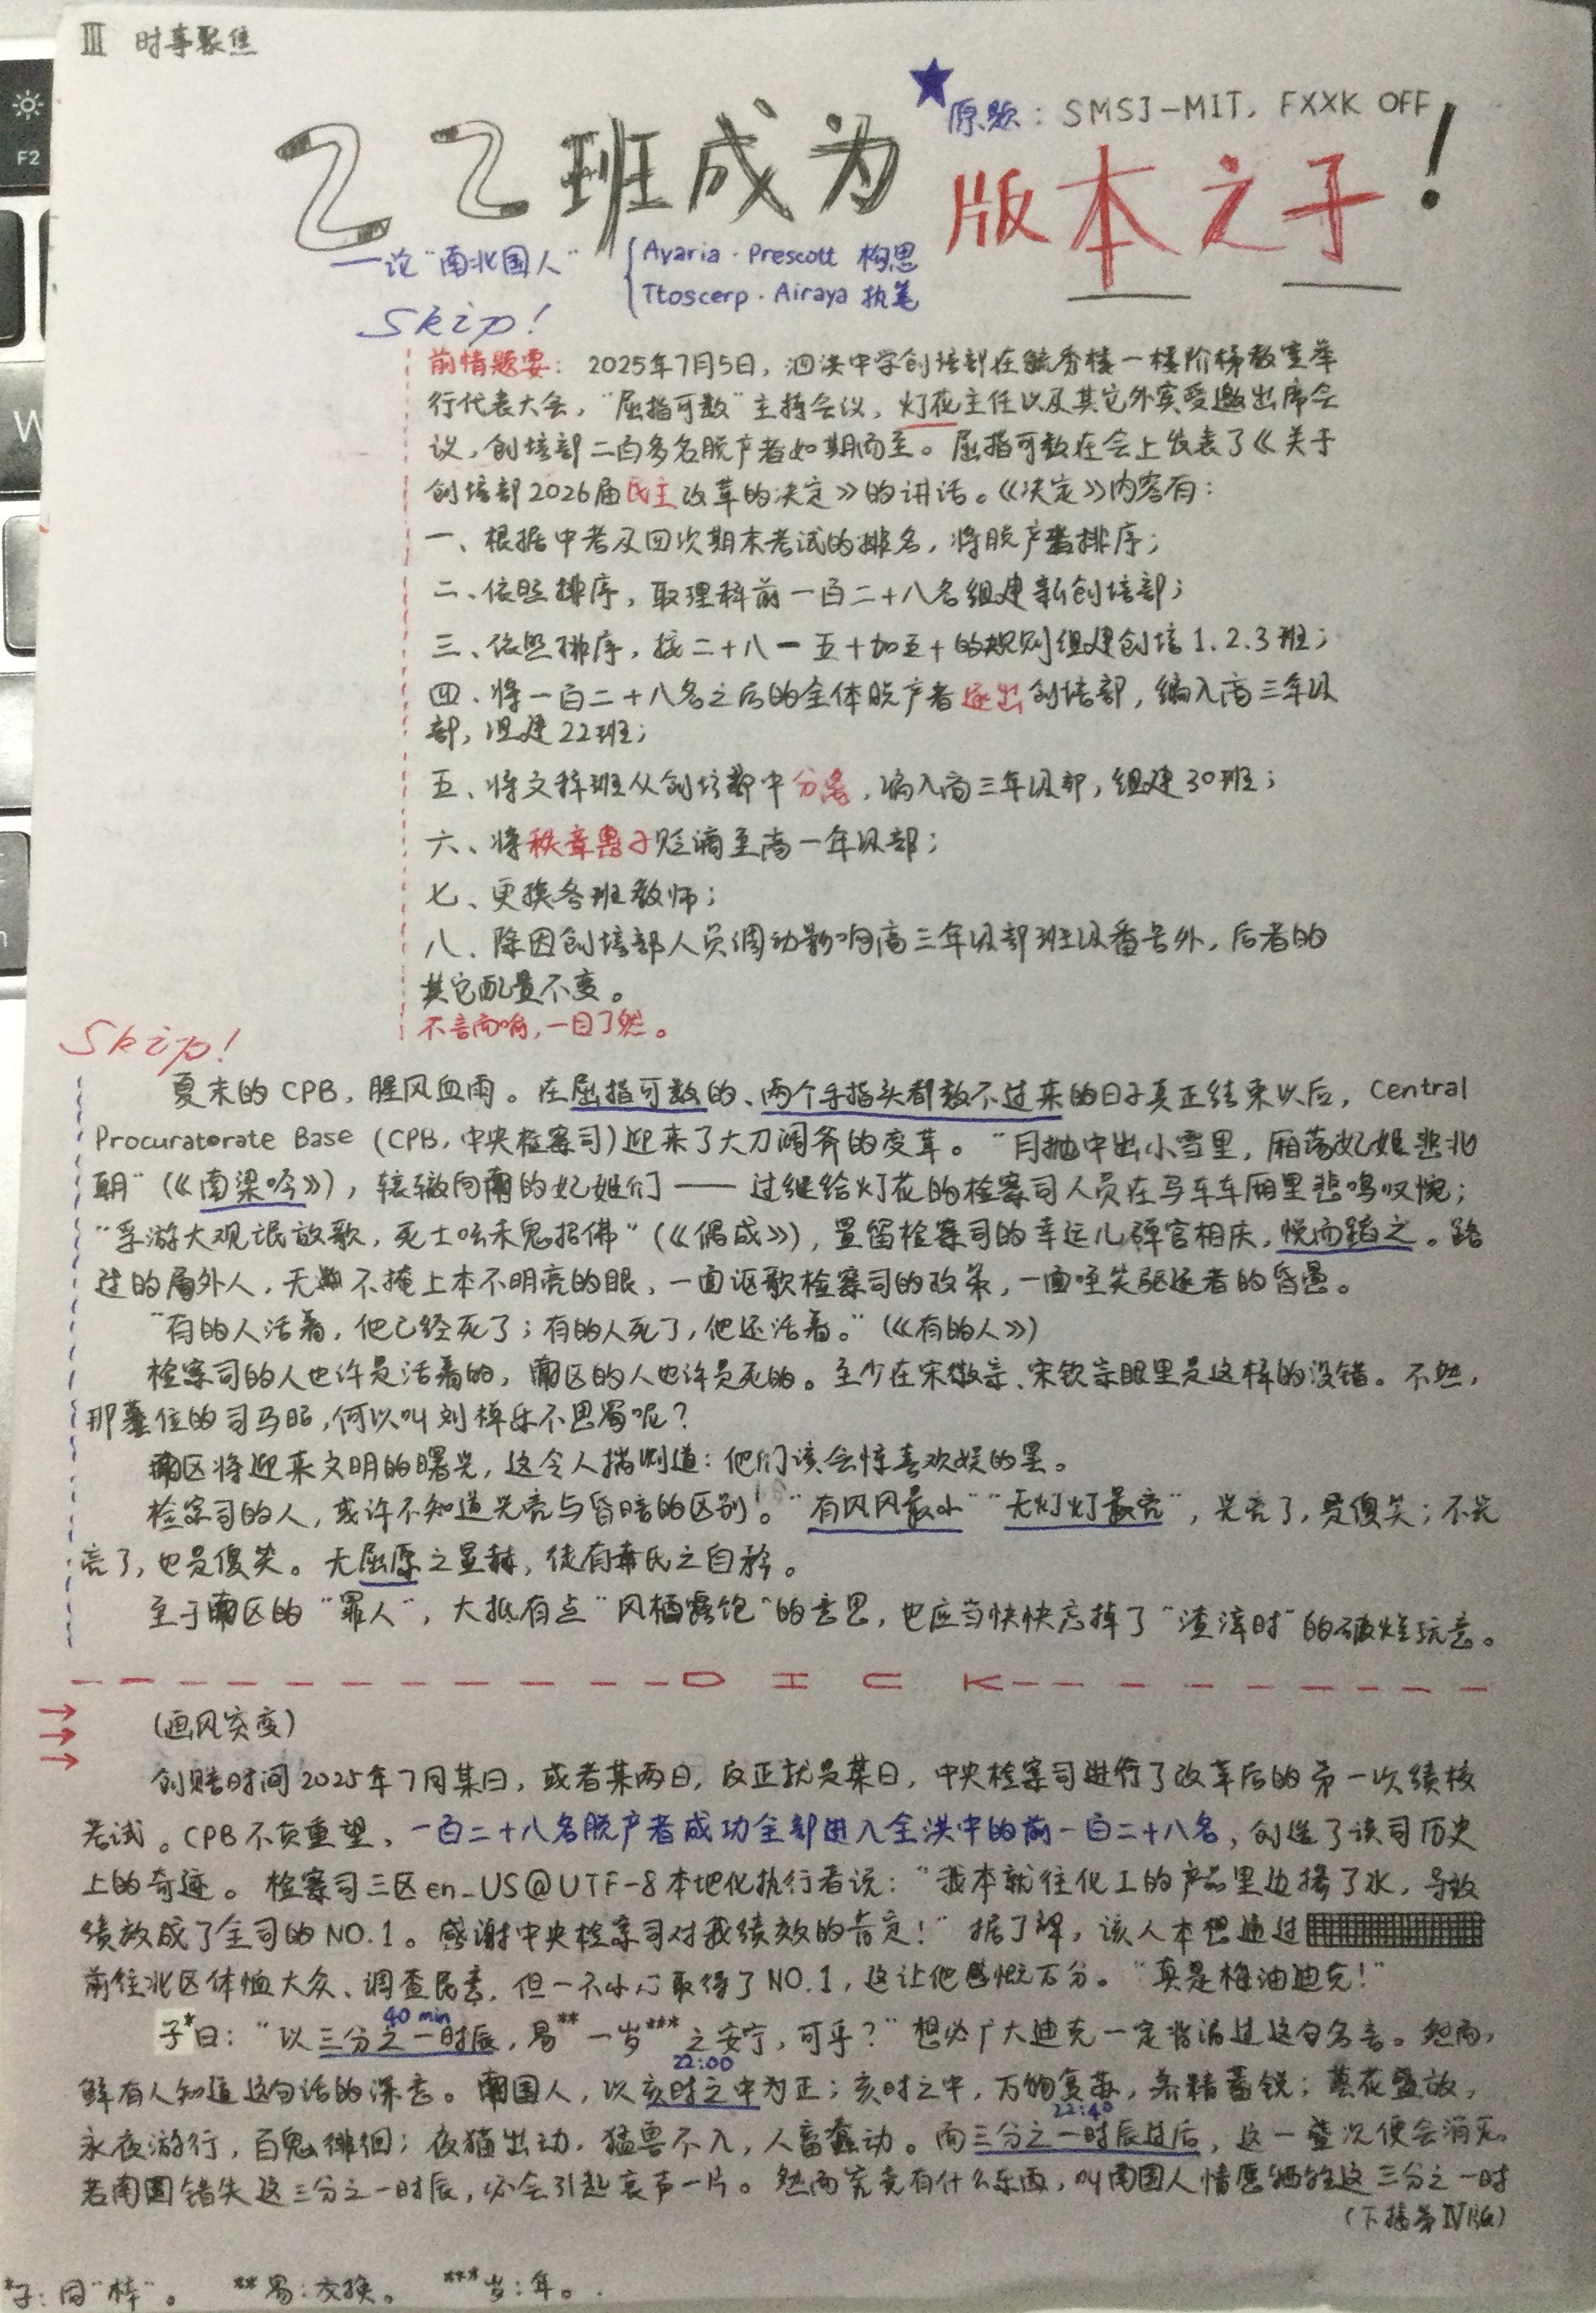 III 时事聚焦
★原题：SMSJ-MIT, FXXK OFF
22班成为版本之子！
——论"南北国人"
Avaria·Prescott 构思
Ttoscerp·Airaya 执笔
Skip!
前情题要：2025年7月5日，泗洪中学创培部在毓秀楼一楼阶梯教室举
行代表大会，"屈指可数"主持会议，灯花主任以及其它外宾受邀出席会
议，创培部二百多名脱产者如期而至。屈指可数在会上发表了《关于
创培部2026届民主改革的决定》的讲话。《决定》内容有：
一、根据中考及四次期末考试的排名，将脱产者排序；
二、依照排序，取理科前一百二十八名组建新创培部；
三、依照排序，按二十八一五十加五十的规则组建创培1.2.3班；
四、将一百二十八名之后的全体脱产者逐出创培部，编入高三年级
部，组建22班；
五、将文科班从创培部中分离，编入高三年级部，组建30班；
六、将秩章愚子贬谪至高一年级部；
七、更换各班教师；
八、除因创培部人员调动影响高三年级部班级番号外，后者的
其它配置不变。
不言而喻，一目了然。
Skip!
夏末的CPB，腥风血雨。在屈指可数的、两个手指头都数不过来的日子真正结束以后，Central
Procuratorate Base (CPB，中央检察司)迎来了大刀阔斧的变革。"月抛中出小雪里，厢荡妃姬悲北
朝"（《南梁吟》），辕辙向南的妃姬们——过继给灯花的检察司人员在马车车厢里悲鸣叹惋；
"浮游大观诋放歌，死士吆禾鬼招佛"（《偶成》），置留检察司的幸运儿弹官相庆，悦而蹈之。路
过的局外人，无不掩上本不明亮的眼，一面讴歌检察司的政策，一面哂笑驱逐者的昏愚。
"有的人活着，他已经死了；有的人死了，他还活着。"（《有的人》）
检察司的人也许是活着的，南区的人也许是死的。至少在宋徽宗、宋钦宗眼里是这样的没错。不然，
那篡位的司马昭，何以叫刘禅乐不思蜀呢？
南区将迎来文明的曙光，这令人揣测道：他们该会惊喜欢娱的罢。
检察司的人，或许不知道光亮与昏暗的区别！"有风风最小""无灯灯最亮"，光亮了，是傻笑；不光
亮了，也是傻笑。无屈原之显赫，徒有项氏之自矜。
至于南区的"罪人"，大抵有点"风栖露饱"的意思，也应当快快忘掉了"渣滓时"的破烂玩意。
DICK
（画风突变）
创赔时间2025年7月某日，或者某两日，反正就是某日，中央检察司进行了改革后的第一次绩核
考试。CPB不负重望，一百二十八名脱产者成功全部进入全洪中的前一百二十八名，创造了该司历史
上的奇迹。检察司三区en_US@UTF-8本地化执行者说："我本就往化工的产品里边掺了水，导致
绩效成了全司的NO.1。感谢中央检察司对我绩效的肯定！"据了解，该人本想通过
前往北区体恤大众、调查民意，但一不小心取得了NO.1，这让他感慨万分。"真是梅油迪克！"
子*曰："以三分之一时辰，易**一岁***之安宁，可乎？"想必广大迪克一定背诵过这句名言。然而，
40 min
鲜有人知道这句话的深意。南国人，以亥时之中为正；亥时之中，万物复苏，养精蓄锐；昙花盛放，
22:00
永夜游行，百鬼徘徊；夜猫出动，猛兽不入，人畜蠢动。而三分之一时辰过后，这一盛况便会消无。
22:40
若南国错失这三分之一时辰，必会引起哀声一片。然而究竟有什么东西，叫南国人情愿牺牲这三分之一时
（下接第IV版）
*子：同"梓"。 **易：交换。 ***岁：年。